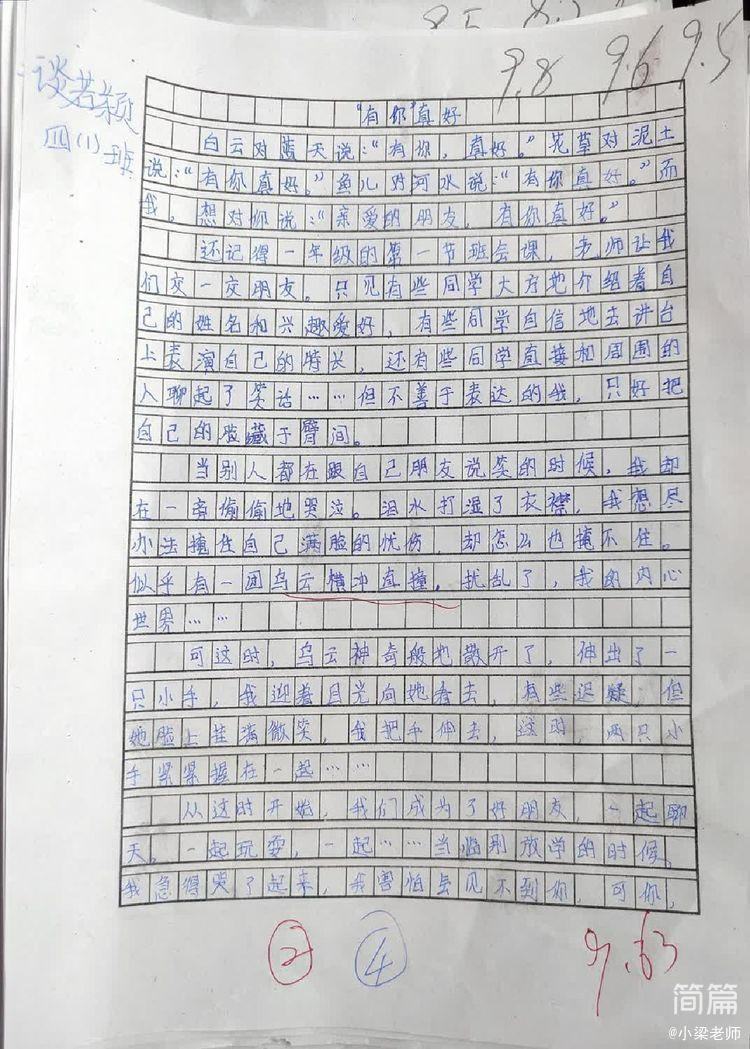 9.8 9.6 9.5
谈若颖
四(1)班
"有你"真好
白云对蓝天说:"有你,真好。"花草对泥土
说:"有你真好。"鱼儿对河水说:"有你真好。"而
我,想对你说:"亲爱的朋友,有你真好。"
还记得一年级的第一节班会课,老师让我
们交一交朋友。只见有些同学大方地介绍着自
己的姓名和兴趣爱好,有些同学自信地去讲台
上表演自己的特长,还有些同学直接和周围的
人聊起了笑话……但不善于表达的我,只好把
自己的脸藏于臂间。
当别人都在跟自己朋友说笑的时候,我却
在一旁偷偷地哭泣。泪水打湿了衣襟,我想尽
办法掩住自己满脸的忧伤,却怎么也掩不住。
似乎有一团乌云横冲直撞,扰乱了,我的内心
世界……
可这时,乌云神奇般地散开了,伸出了一
只小手,我迎着目光向她看去,有些迟疑,但
她脸上挂满微笑,我把手伸去,这时,两只小
手紧紧握在一起……
从这时开始,我们成为了好朋友,一起聊
天。一起玩耍,一起……当临别放学的时候,
我急得哭了起来,我害怕会见不到你,可你,
2 4 9.63
简篇
@小梁老师